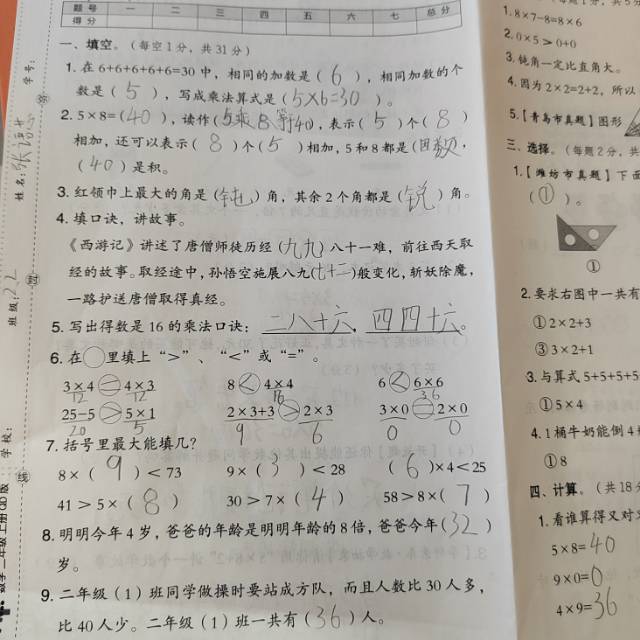 题号 一 二 三 四 五 六 七 总分
得分
一、填空。（每空1分，共31分）
1.在6+6+6+6+6=30中，相同的加数是（6），相同加数的个
数是（5），写成乘法算式是（5×6=30）。
2.5×8=（40），读作（5乘8等于40），表示（5）个（8）
相加，还可以表示（8）个（5）相加，5和8都是（因数，
（40）是积。
3.红领巾上最大的角是（钝）角，其余2个角都是（锐）角。
4.填口诀，讲故事。
《西游记》讲述了唐僧师徒历经（九九）八十一难，前往西天取
经的故事。取经途中，孙悟空施展八九（七十二）般变化，斩妖除魔，
一路护送唐僧取得真经。
5.写出得数是16的乘法口诀：二八十六，四四十六。
6.在○里填上“>”、“<”或“=”。
3×4=4×3 8<4×4 6<6×6
12 12 16 36
25-5>5×1 2×3+3>2×3 3×0=2×0
20 5 9 6 0 0
7.括号里最大能填几？
8×（9）<73 9×（3）<28 （6）×4<25
41>5×（8） 30>7×（4） 58>8×（7）
8.明明今年4岁，爸爸的年龄是明明年龄的8倍，爸爸今年（32）
岁。
9.二年级（1）班同学做操时要站成方队，而且人数比30人多，
比40人少。二年级（1）班一共有（36）人。
学号：
姓名：张
班级：2.2
学校：
密
封
线
数学 二年级 上册 QD版
1.8×7-8=8×6
2.0×5>0+0
3.锐角一定比直角大。
4.因为2×2=2+2，所以
5.【青岛市真题】图形
三、选择。（每题2分，共
1.【潍坊市真题】下面
（①）。
①
2.要求右图中一共有
①2×2+3
③3×2+1
3.与算式5+5+5+5
①5×4
4.1桶牛奶能倒4
①8
四、计算。（共18分
1.看谁算得又对又
5×8=40
9×0=0
4×9=36